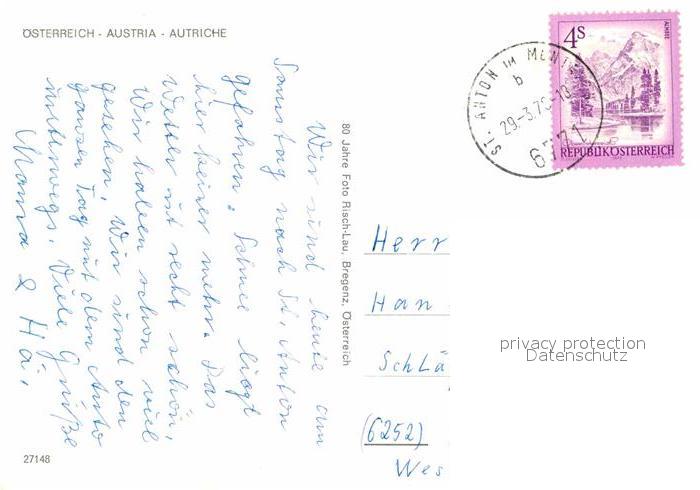 ÖSTERREICH - AUSTRIA - AUTRICHE
Wir sind heute am
Samstag nach St. Anton
gefahren. Schnee liegt
hier keiner mehr. Das
Wetter ist recht schön.
Wir haben schon viel
gesehen. Wir sind den
ganzen Tag mit dem Auto
unterwegs. Viele Grüße
Mama &
27148
80 Jahre Foto Risch-Lau, Bregenz, Österreich
4S
ALMSEE
REPUBLIK ÖSTERREICH
ST. ANTON IM
b
29.-3.7
6771
Herr
Han
Schlä
(6252)
Wes
privacy protection
Datenschutz